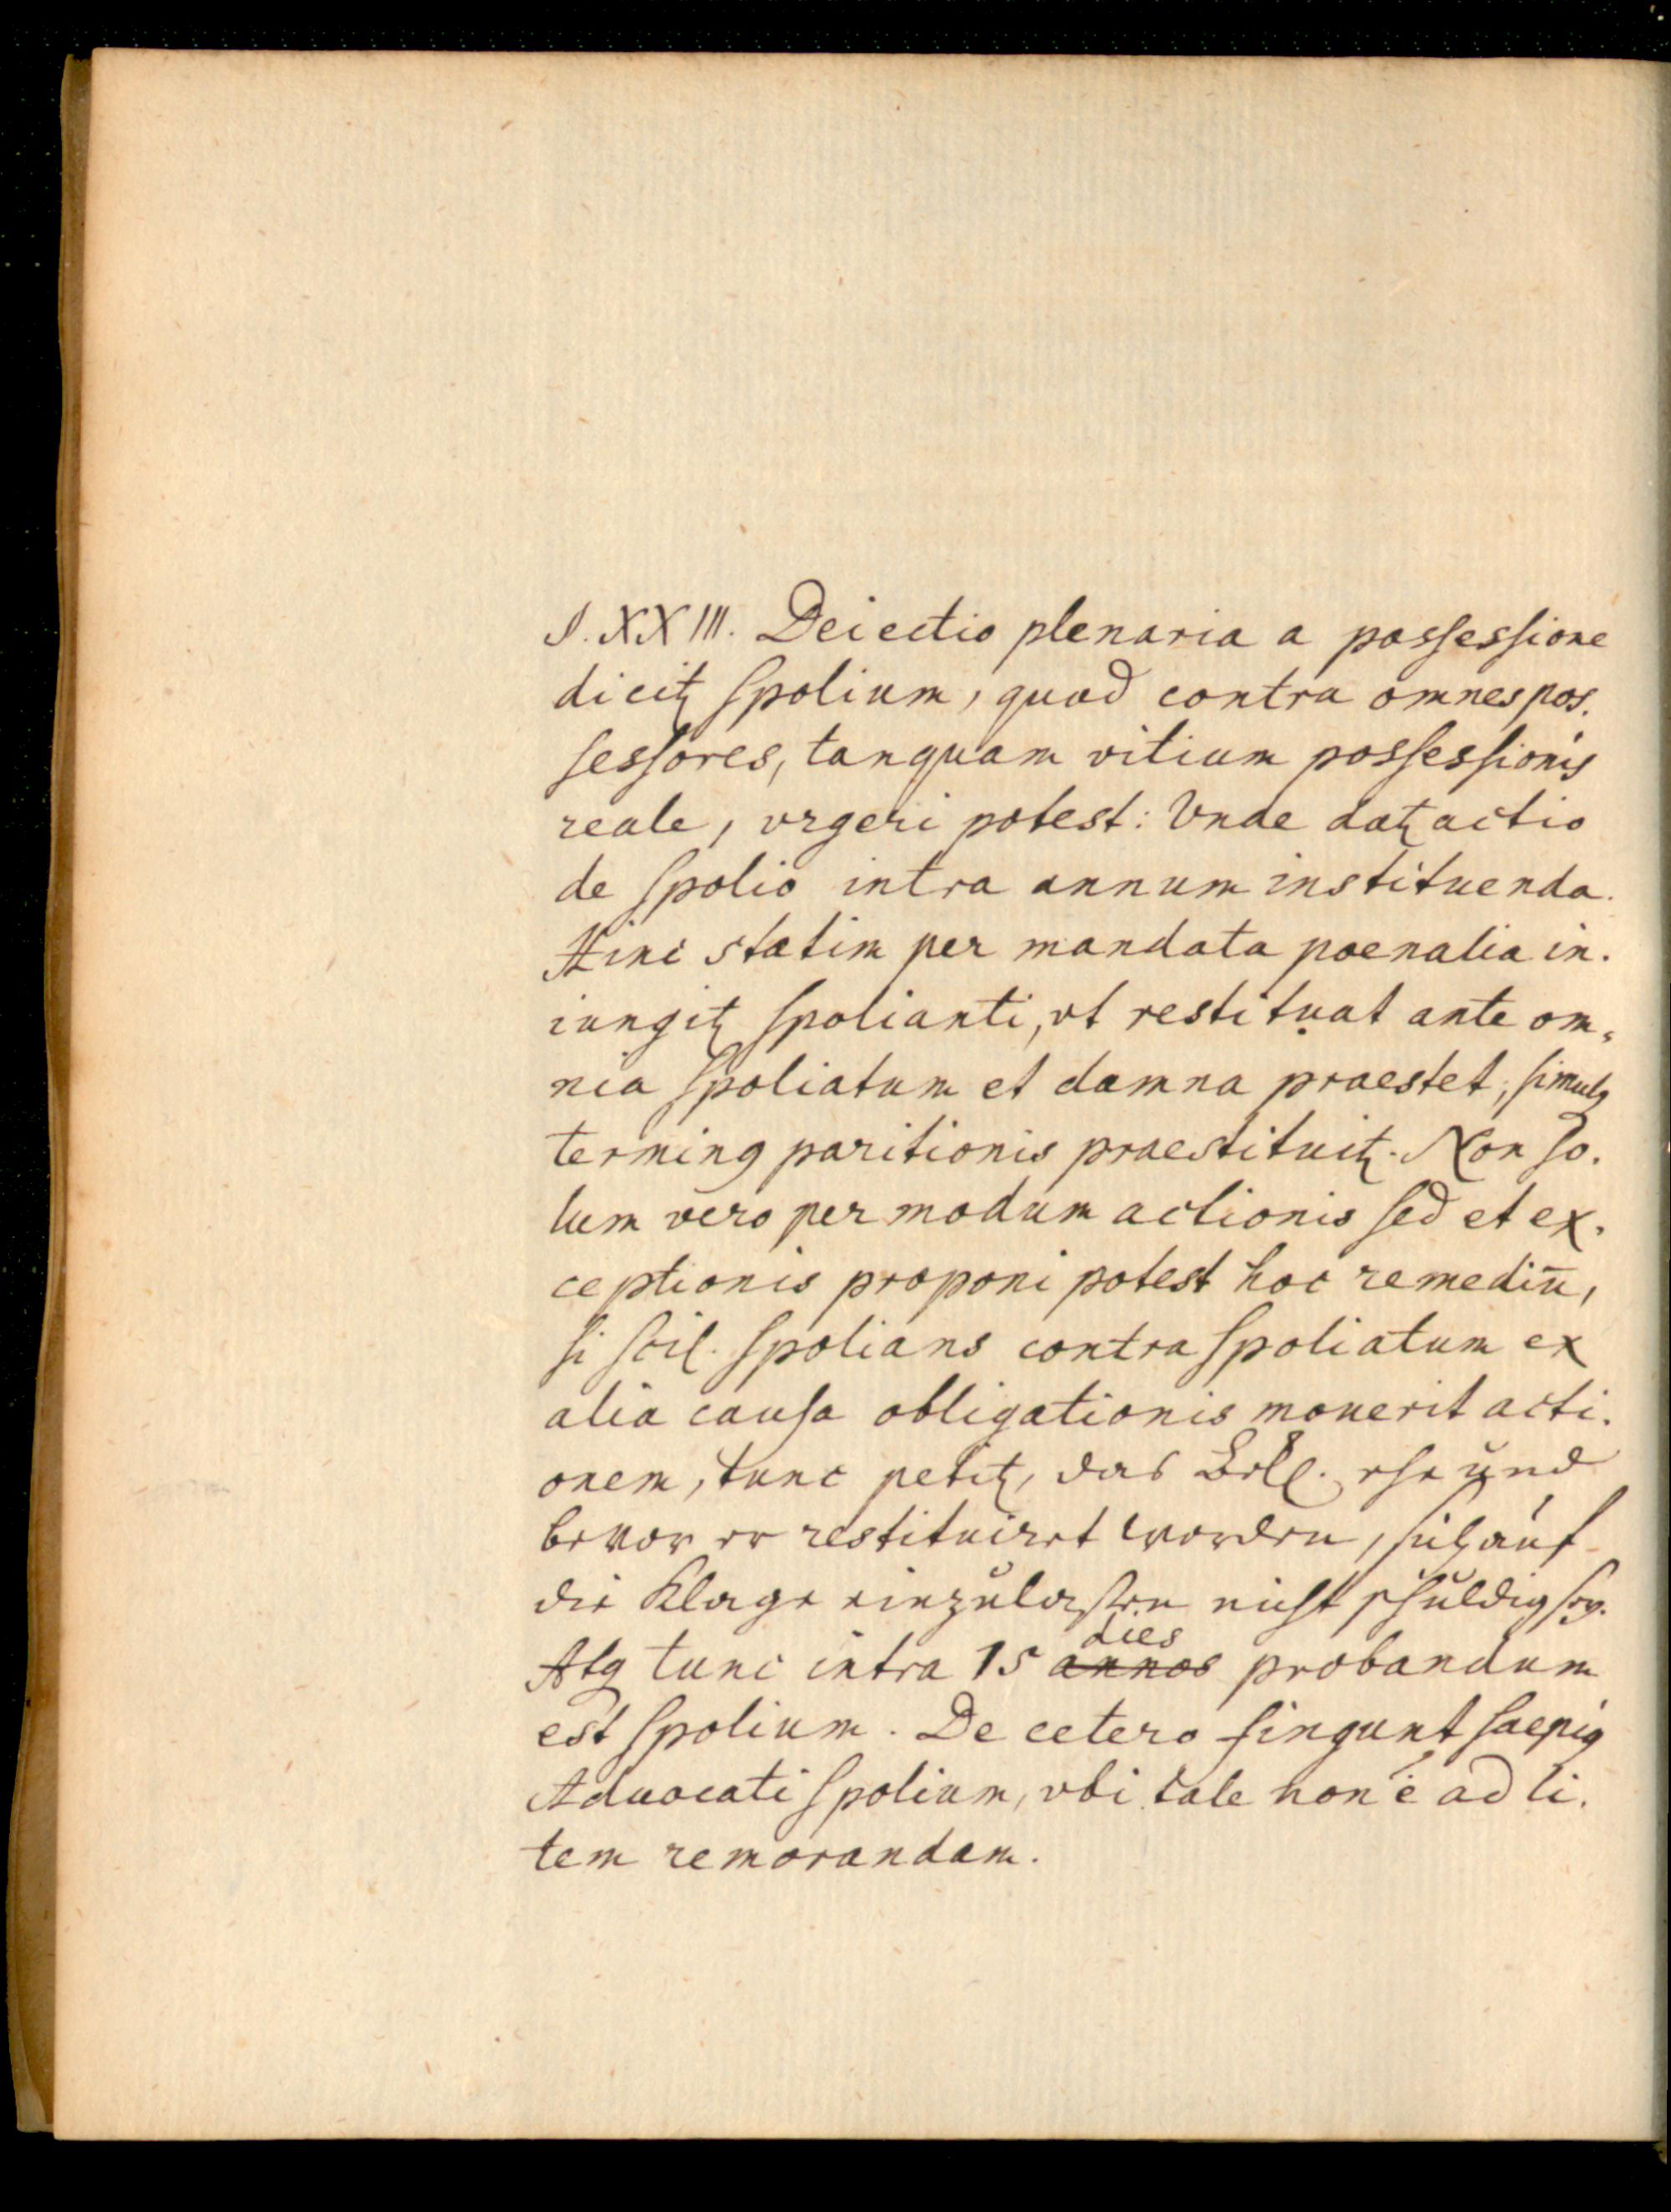 §. XXIII. Deiectio plenaria a possessione
dicitꝛ spolium, quod contra omnes pos-
sessores, tanquam vitium possessionis
reale, vrgeri potest: Vnde datꝛ actio
de spolio intra annum instituenda.
Hinc statim per mandata poenalia in-
iungitꝛ spolianti, vt restituat ante om-
nia spoliatum et damna praestet, simulq
terminꝰ paritionis praestituitꝛ. Non so-
lum vero per modum actionis sed et ex-
ceptionis proponi potest hoc remediū,
si scil. spolians contra spoliatum ex
alia causa obligationis mouerit acti-
onem, tunc petitꝛ, das Bekl. ehe und
bevor er restituiret worden, sich auf
die Klage einzulaßen nicht schuldig sey.
Atq tunc intra 15 dies annos probandum
est spolium. De cetero fingunt saepiꝰ
Aduocati spolium, vbi tale non ē ad li-
tem remorandam.